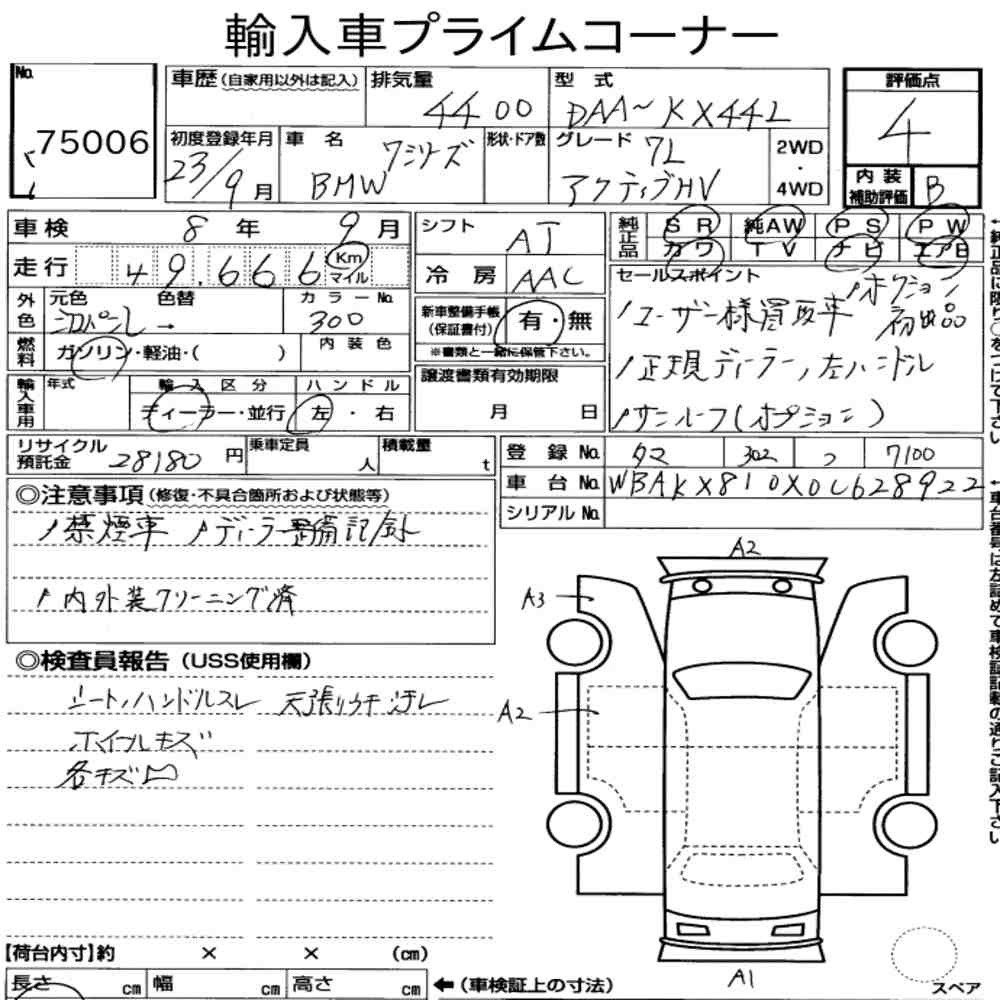 輸入車プライムコーナー
No.
75006
車歴(自家用以外は記入)
排気量
4400
型式
DAA-KX44L
評価点
4
初度登録年月
23/9月
車名
BMW
7シリーズ
形状・ドア数
グレード
7L
アクティブHV
2WD
・
4WD
内装
補助評価
B
車検
8年
9月
走行
49,666
Km
マイル
シフト
AT
冷房
AAC
純正品
SR
純AW
PS
PW
カワ
TV
ナビ
エアB
外色
元色
シロパール
色替
→
カラーNo.
300
燃料
ガソリン・軽油・( )
内装色
新車整備手帳
(保証書付)
有・無
※書類と一緒に保管下さい。
セールスポイント
ユーザー様買取車
オクション
初出品
正規ディーラー,左ハンドル
サンルーフ(オプション)
輸入車用
年式
輸入区分
ディーラー・並行
ハンドル
左・右
譲渡書類有効期限
月 日
リサイクル
預託金
28180円
乗車定員
人
積載量
t
登録No.
タマ
302
7100
車台No.
WBAKX810X0C628922
シリアルNo.
◎注意事項(修復・不具合箇所および状態等)
禁煙車
ディーラー整備記録
内外装クリーニング済
◎検査員報告(USS使用欄)
シート,ハンドルスレ 天張りウチ汚レ
ホイールキズ
各キズ凹
A2
A3
A2
A1
スペア
【荷台内寸】約 × × (cm)
長さ cm
幅 cm
高さ cm
←(車検証上の寸法)
←純正品に限り○をつけて下さい
←車台番号は左詰めで車検証記載の通りご記入下さい